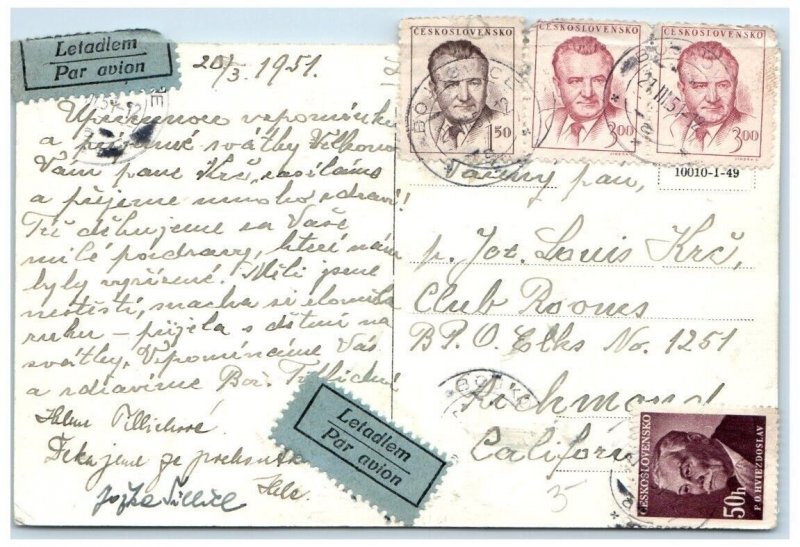 Letadlem
Par avion
20/3. 1951.
a příjemné svátky
Vám pane Krč, zasíláme
a přejeme mnoho zdraví!
Též děkujeme za Vaše
milé pozdravy, které nám
byly vyřízené. Měli jsme
neštěstí, si zlomila
ruku – přijela s dětmi na
svátky. Vzpomínáme Vás
a zdravíme
Děkujeme za
ČESKOSLOVENSKO
1.50
ČESKOSLOVENSKO
3.00
ČESKOSLOVENSKO
3.00
BOJKOVICE
21.III.51
10010-1-49
Vážený pan,
p. Jos. Louis Krč,
Club Rooms
B.P.O. Elks No. 1251
Richmond
Califor
5
Letadlem
Par avion
ČESKOSLOVENSKO
50h
P. O. HVIEZDOSLAV